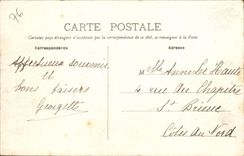 76
CARTE POSTALE
Certains pays étrangers n'acceptent pas la correspondance de ce côté, se renseigner à la Poste
Correspondance
Adresse
Affectueux souvenir
et
bons baisers
Georgette
Mlle Anne Le
4 rue du Chapitre
St Brieuc
Côtes du Nord